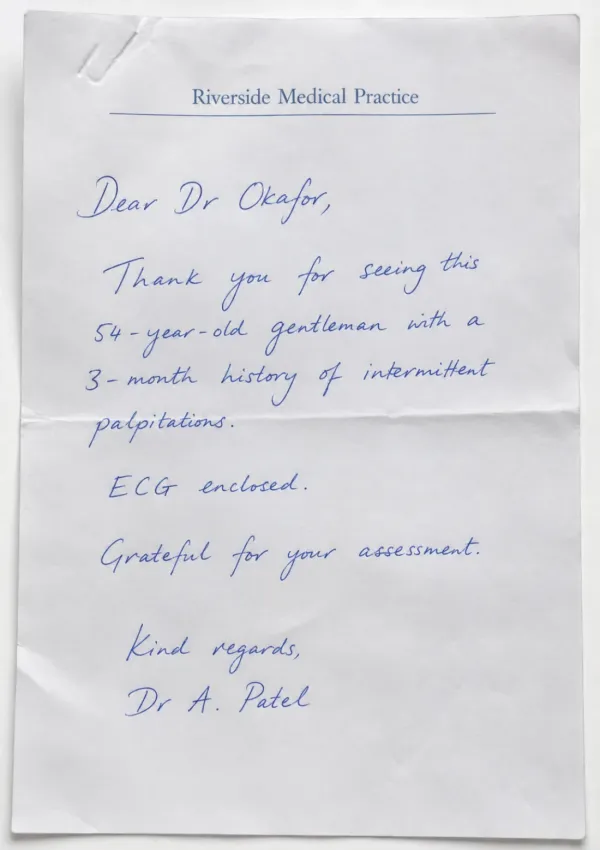 Riverside Medical Practice
Dear Dr Okafor,
Thank you for seeing this
54-year-old gentleman with a
3-month history of intermittent
palpitations.
ECG enclosed.
Grateful for your assessment.
Kind regards,
Dr A. Patel